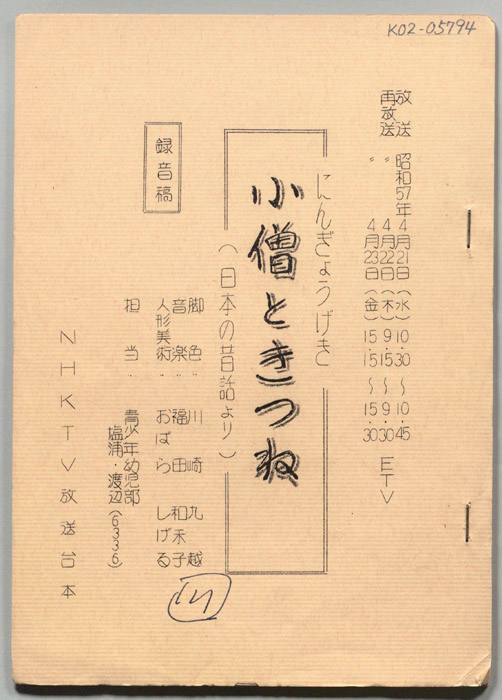 K02-05794
放送 昭和57年4月21日(水)10・30〜10・45
再放送 〃 4月22日(木)9・15〜9・30 ETV
〃 4月23日(金)15・15〜15・30
にんぎょうげき
小僧ときつね
(日本の昔話より)
録音稿
脚色・川崎九越
音楽・福田和禾子
人形美術・おばらしげる
担当・青少年幼児部
塩浦・渡辺(6336)
NHKTV放送台本